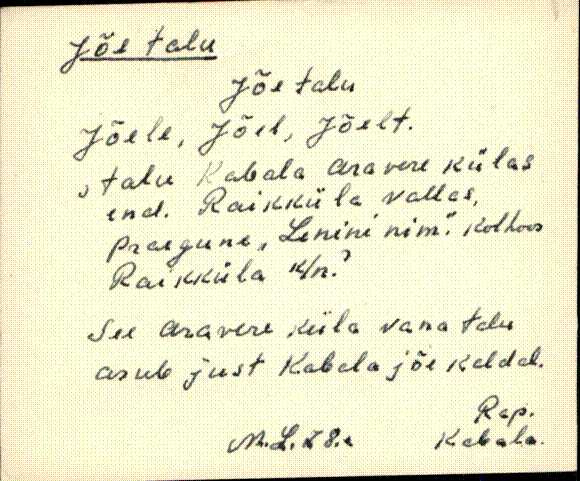 Jõe talu
Jõe talu
Jõele, Jõel, Jõelt.
„talu Kabala Aravere külas
end. Raikküla vallas,
praegune „Lenini nim." kolhoos
Raikküla k/n.?
See Aravere küla vana talu
asub just Kabala jõe kaldal.
Rap.
Kabala.